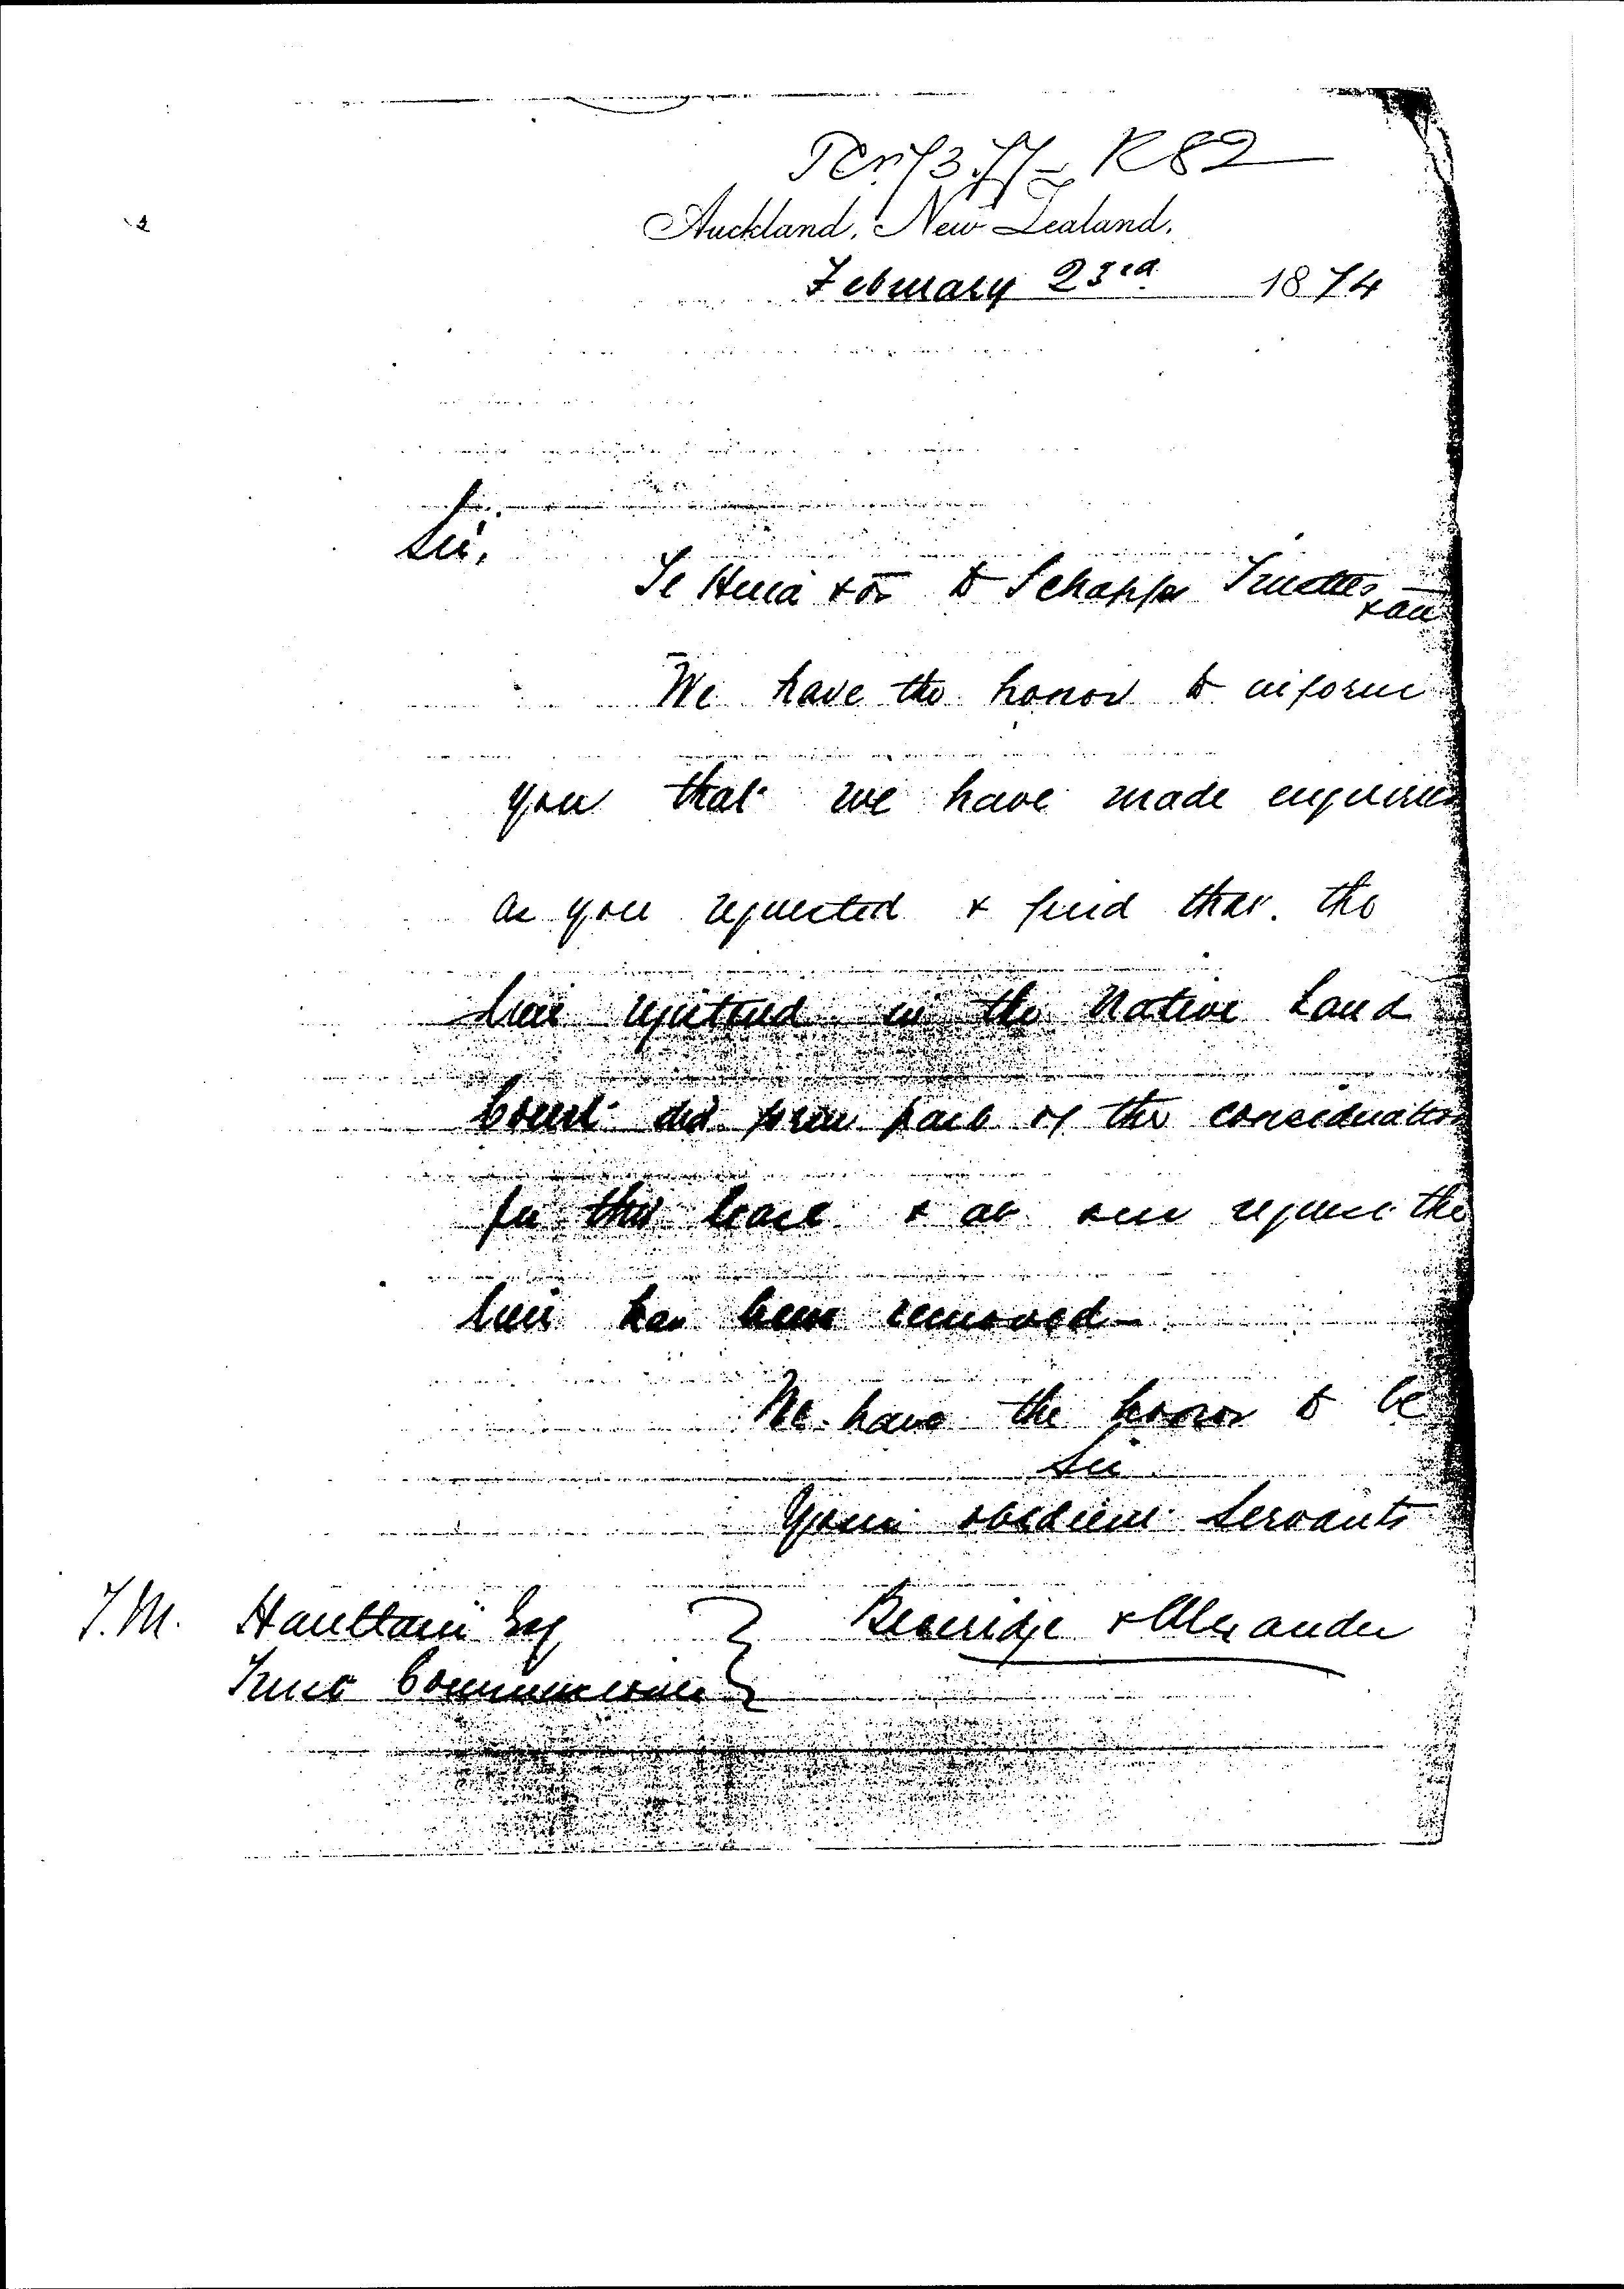 R 82
Auckland, New Zealand,
February 23rd 1874
Sir,
Te Huia & or to Schappe Trustees & an
We have the honor to inform
you that we have made enquiries
as you requested & find that the
lien registered in the Native Land
Court did form part of the consideration
for this lease & at our request the
lien has been removed
We have the honor to be
Sir
Your obedient Servants
Beveridge & Alexander
T.M. Haultain Esq
Trust Commissioner